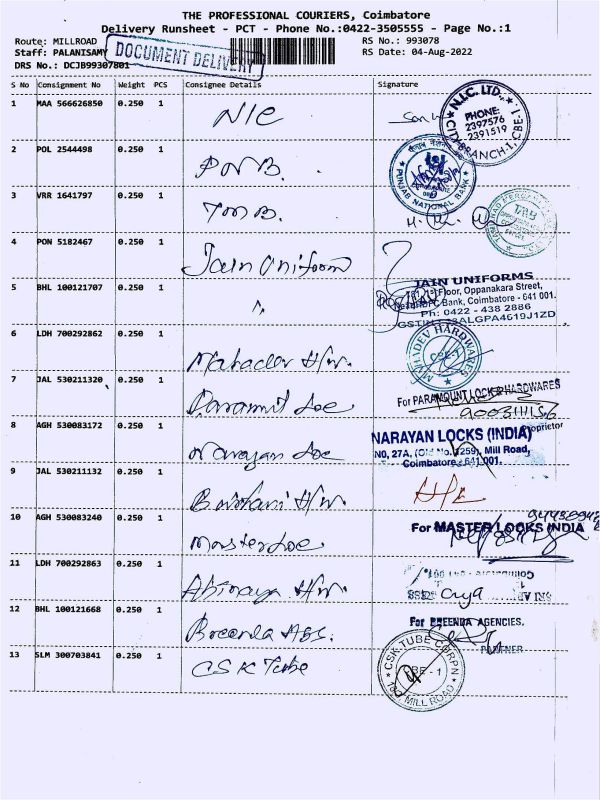 THE PROFESSIONAL COURIERS, Coimbatore
Delivery Runsheet - PCT - Phone No.:0422-3505555 - Page No.:1
Route: MILLROAD RS No.: 993078
Staff: PALANISAMY RS Date: 04-Aug-2022
DRS No.: DCJB99307801
DOCUMENT DELIVERY
S No Consignment No Weight PCS Consignee Details Signature
1 MAA 566626850 0.250 1 NIC
N.I.C. LTD.,
PHONE:
2397576
2391519
CITY BRANCH-1, CBE-1
2 POL 2544498 0.250 1 PNB.
PUNJAB NATIONAL BANK
3 VRR 1641797 0.250 1 TMB.
TMB
4 PON 5182467 0.250 1 Jain Uniform
5 BHL 100121707 0.250 1 "
JAIN UNIFORMS
1st Floor, Oppanakara Street,
Bank, Coimbatore - 641 001.
Ph: 0422 - 438 2886
GSTIN: 33ALGPA4619J1ZD
6 LDH 700292862 0.250 1 Mahadev H/w.
MAHADEV HARDWARES
CBE-1
7 JAL 530211320 0.250 1 Paramut Loc
For PARAMOUNT LOCK & HARDWARES
8 AGH 530083172 0.250 1 Narayan Loc
Proprietor
NARAYAN LOCKS (INDIA)
N0, 27A, (Old No. 1259), Mill Road,
Coimbatore - 641 001.
9 JAL 530211132 0.250 1 H/w.
10 AGH 530083240 0.250 1 Master Loc
For MASTER LOCKS INDIA
11 LDH 700292863 0.250 1 Abinaya H/w.
12 BHL 100121668 0.250 1 Breenda Ags.
For BREENDA AGENCIES.
PARTNER
13 SLM 300703841 0.250 1 CSK Tube
CSK TUBE CORPN
CBE - 1
MILL ROAD